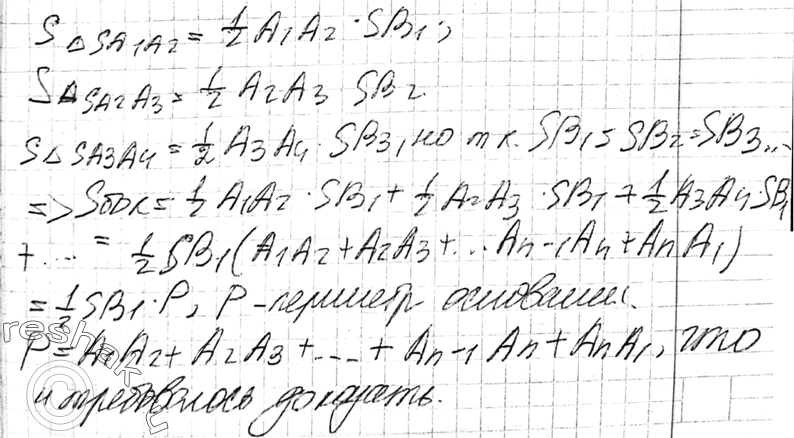 S△SA1A2 = 1/2 A1A2 · SB1;
S△SA2A3 = 1/2 A2A3 SB2.
S△SA3A4 = 1/2 A3A4 · SB3, но т.к. SB1 = SB2 = SB3...
=> Sбок = 1/2 A1A2 · SB1 + 1/2 A2A3 · SB1 + 1/2 A3A4 · SB1
+ ... = 1/2 SB1 (A1A2 + A2A3 + ... An-1An + AnA1)
= 1/2 SB1 · P, P - периметр основания.
P = A1A2 + A2A3 + ... + An-1An + AnA1, что
и требовалось доказать.
reshak.ru